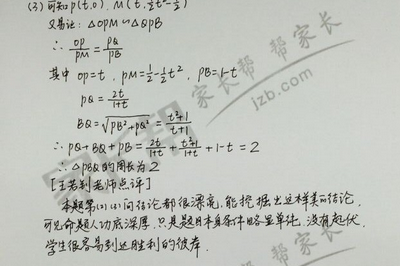 (3) 可知 P(t,0), M(t, ½t²-½)
又易证: △OPM∽△QPB
∴ OP/PM = PQ/PB
其中 OP=t, PM=½-½t², PB=1-t
PQ = 2t/(1+t)
BQ = √(PB²+PQ²) = (t²+1)/(t+1)
∴ PQ+BQ+PB = 2t/(1+t) + (t²+1)/(1+t) + 1-t = 2
∴ △PBQ的周长为2
[王若利老师点评]
本题第(2)(3)问结论都很漂亮, 能挖掘出这样美的结论,
可见命题人功底深厚, 只是题目本身条件略显单纯, 没有起伏,
学生很容易到达胜利的彼岸.
家长帮 帮家长
jzb.com